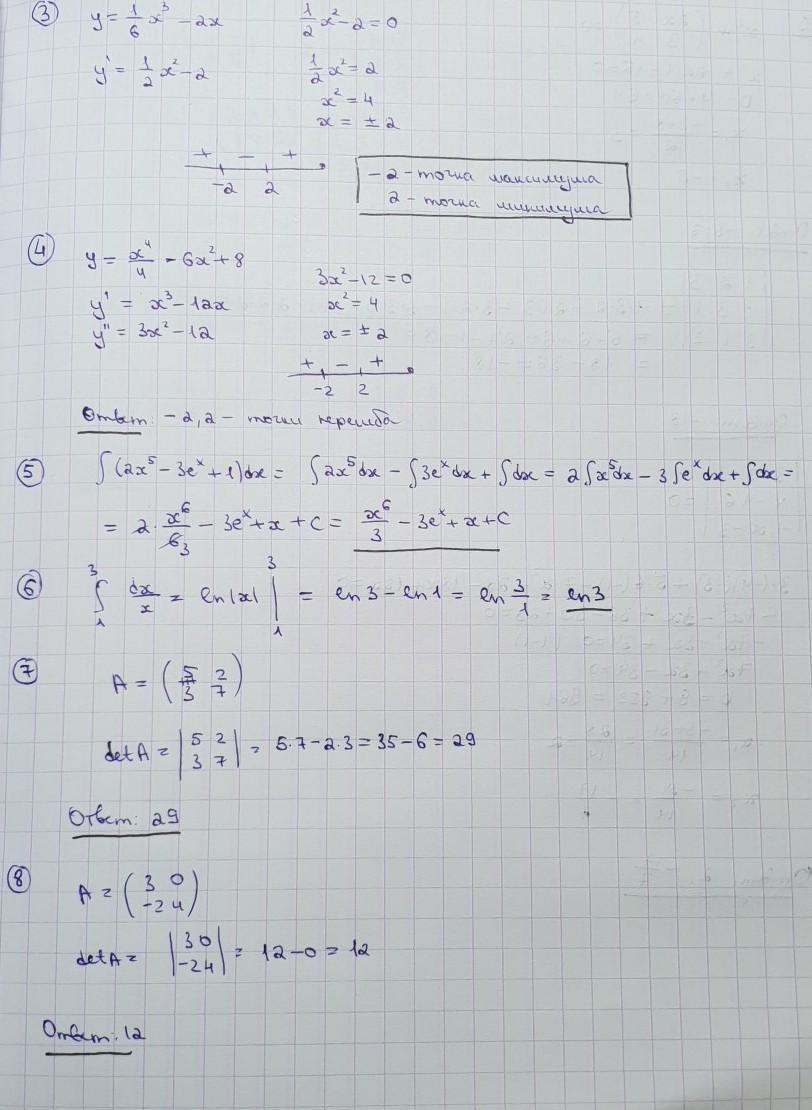 ③ y = 1/6 x³ - 2x    1/2 x² - 2 = 0
y' = 1/2 x² - 2    1/2 x² = 2
x² = 4
x = ± 2
+ - +
-2 2
-2 - точка максимума
2 - точка минимума
④ y = x⁴/4 - 6x² + 8    3x² - 12 = 0
y' = x³ - 12x    x² = 4
y'' = 3x² - 12    x = ± 2
+ - +
-2 2
Ответ: -2, 2 - точки перегиба
⑤ ∫(2x⁵ - 3eˣ + 1)dx = ∫2x⁵dx - ∫3eˣdx + ∫dx = 2∫x⁵dx - 3∫eˣdx + ∫dx =
= 2 · x⁶/6 3 - 3eˣ + x + C = x⁶/3 - 3eˣ + x + C
⑥ ∫₁³ dx/x = ln|x| |₁³ = ln3 - ln1 = ln 3/1 = ln3
⑦ A = (5 2
3 7)
detA = |5 2
3 7| = 5·7 - 2·3 = 35 - 6 = 29
Ответ: 29
⑧ A = (3 0
-2 4)
detA = |3 0
-2 4| = 12 - 0 = 12
Ответ: 12